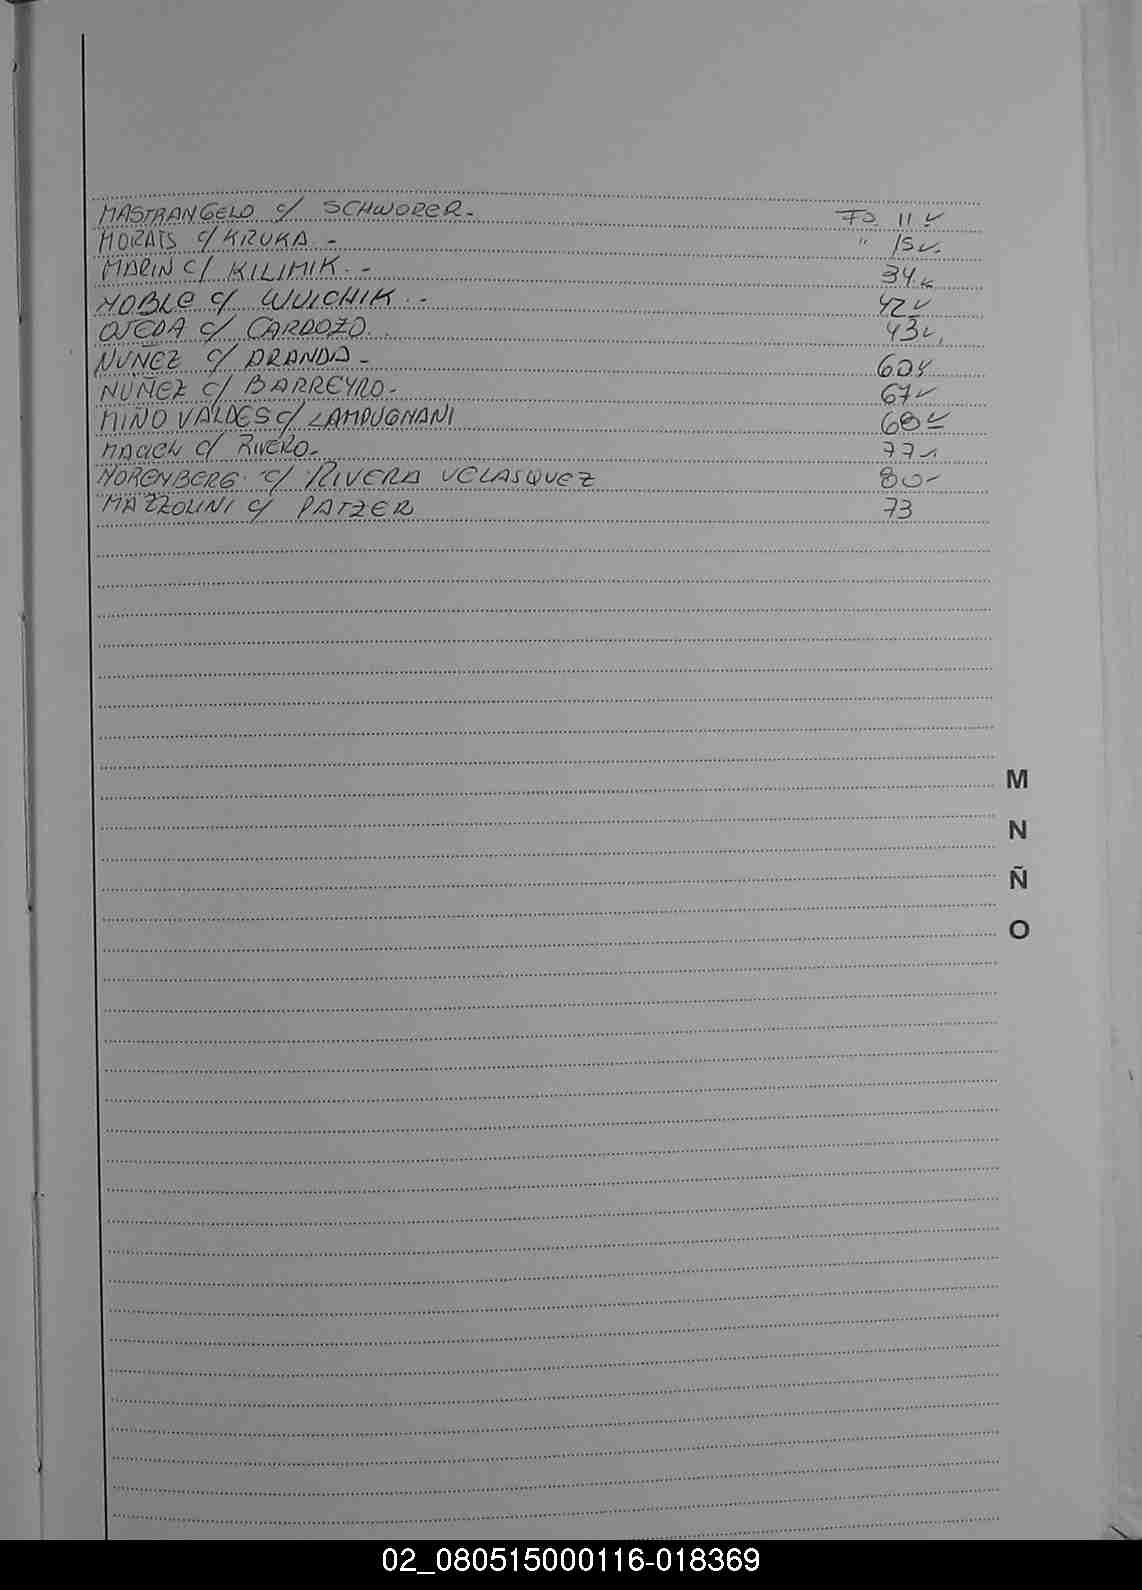 MASTRANGELO c/ SCHWORER.- Fo. 11 ✓
MORAIS c/ KRUKA.- " 15 ✓.
MARIN c/ KILIMIK.- 34 ✓
NOBLE c/ WUICHIK.- 42 ✓
OJEDA c/ CARDOZO. 43 ✓.
NUÑEZ c/ ARANDA- 60 ✓
NUÑEZ c/ BARREYRO- 67 ✓
MIÑO VALDES c/ LAMPUGNANI 68 ✓
MACIEL c/ RIVERO- 77 ✓
NORENBERG c/ RIVERA VELASQUEZ 80-
MAZZOLINI c/ PATZER 73
M
N
Ñ
O
02_080515000116-018369